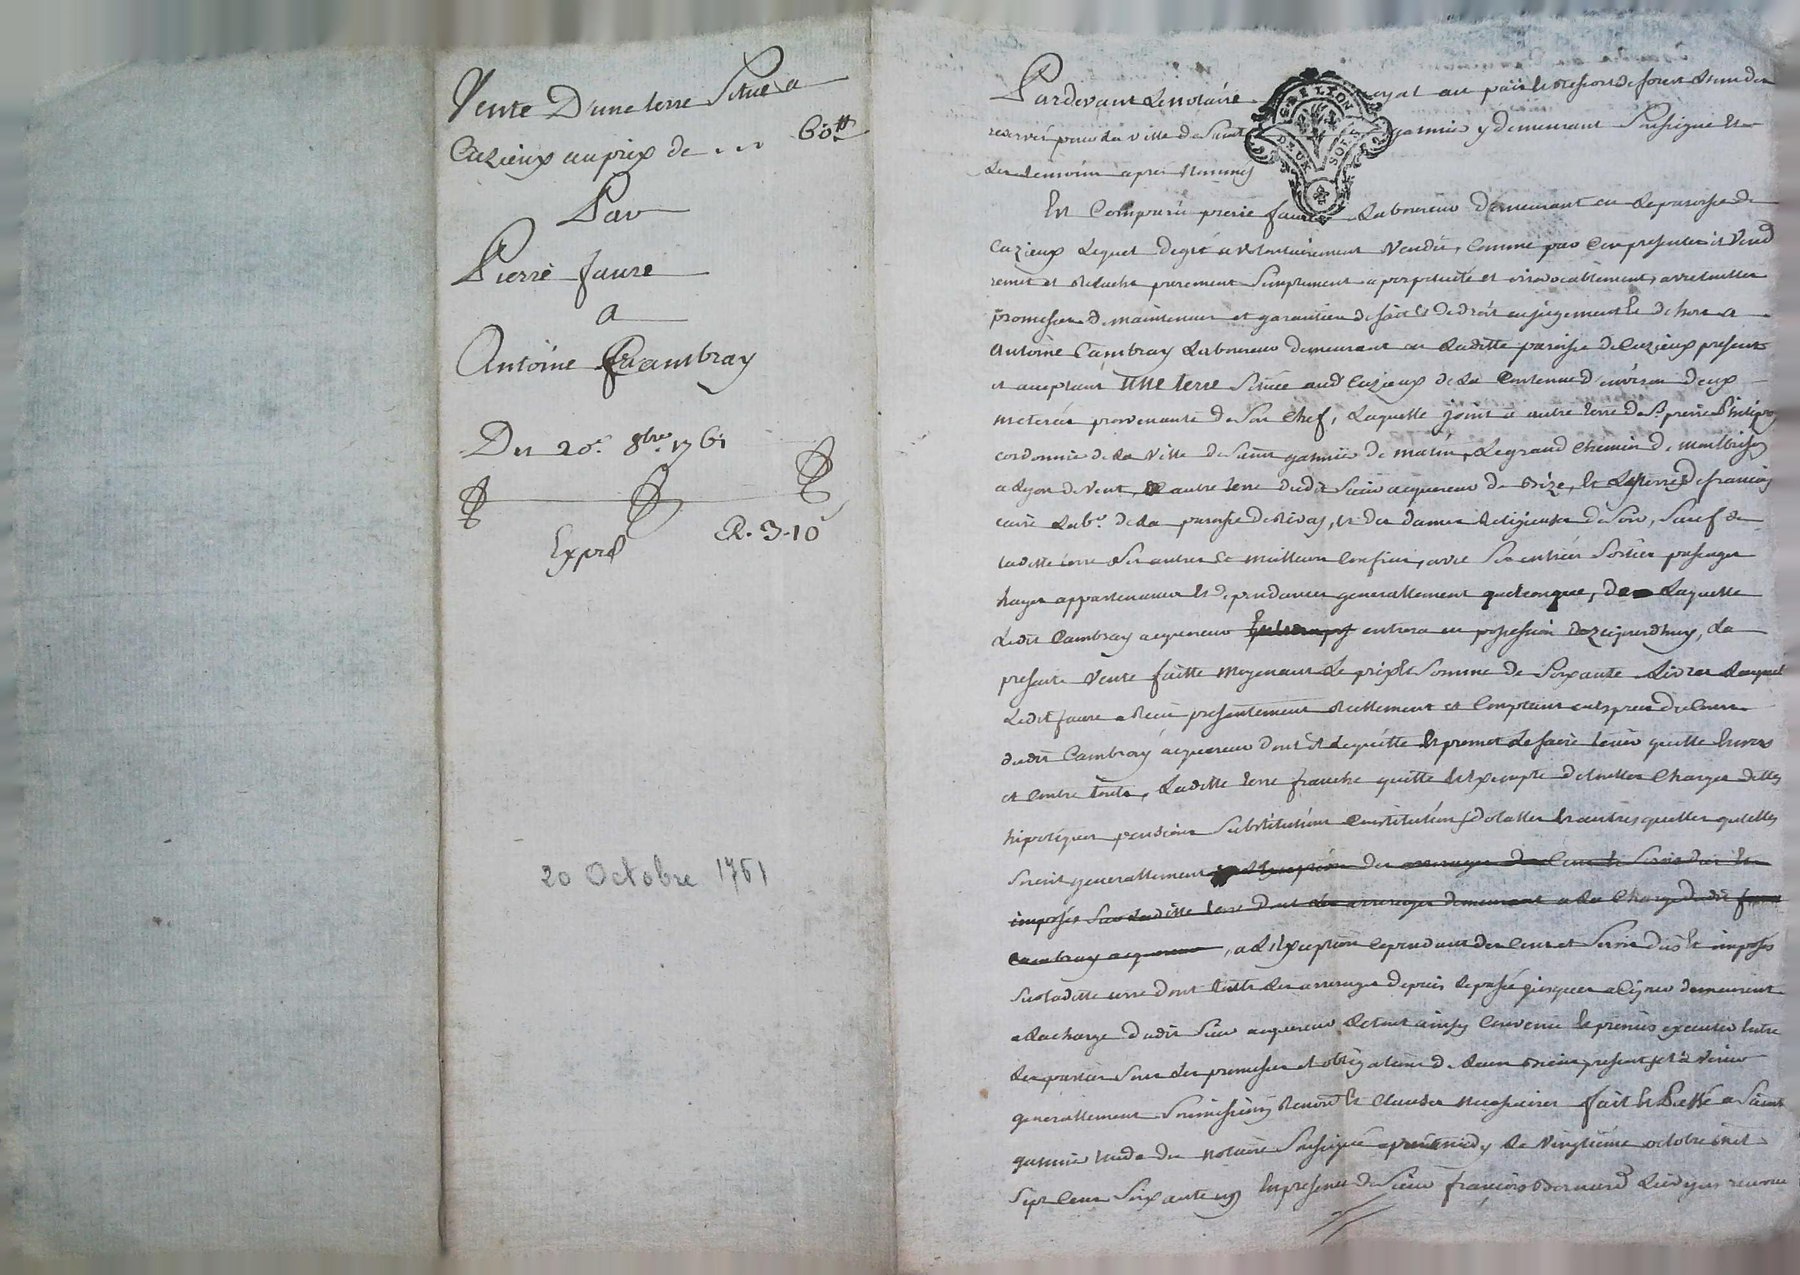 Vente D'une terre Situé a
Cuzieux au prix de ... 60tt
Par
Pierre faure
a
Antoine Chambray
Du 20e. 8bre. 1761
R. 3-10
Expéd
20 Octobre 1761
Pardevant Le notaire oyal au païs et ressort de forest
reservé pour la ville de Saint garmier y demeurant Soussigné Et
Les temoins apres Nommés
GN. DE LYON
DEUX SOLS
Est Comparu pierre faure Laboureur demeurant en La paroisse de
Cuzieux Lequel de gré a volontairement Vendu, Comme par Ces presentes il Vend
remet et Relache purement Simplement a perpetuité et irrevocablement, avec telles
promesses de maintenue et garantie de fait Et de droit en jugement Et dehors a
Antoine Cambray Laboureur demeurant en Laditte paroisse de Cuzieux present
et aceptant Une terre Situee aud Cuzieux de La Contenue d'environ deux
meterées provenante de Son Chef, Laquelle joint a autre terre de Sr. pierre
cordonnier de La Ville de Saint garmier de matin, Le grand Chemin de montbrison
a Lyon de Vent, autre terre dudit Sieur acquereur de Bize, Et Les terres de françois
Labr. de La paroisse de Rivas, et des dames Religieuses de Soir, Sauf de
Laditte terre Ses autres Et meilleurs Confins, avec Ses entrées Sorties passages
hayes appartenances Et dependances generallement quelconque, de Laquelle
Ledit Cambray acquereur entrera en possession dezajourdhuy, La
presente Vente faitte Moyenant Le prix et Somme de Soixante Livres Laquelle
Ledit faure a Reçu presentement Reellement et Comptant en especes de Cours
dudit Cambray acquereur dont il Le quitte Et promet Le faire tenir quitte Envers
et Contre touts, Laditte terre franche quitte Et Exempte de touttes Charges dettes
hipoteques pensions Substitutions Constitutions dotalles Et autres quelles quelles
Soient generallement a L'Exception des arrerages des Cens Et Servis dus Et
imposés Sur Laditte terre dont Les arrerages demeurent a La Charge dudit
Cambray acquereur, a L'Exception Cependant des Cens et Servis dus Et imposés
Sur laditte terre dont touts Les arrerages depuis Le passé jusques a Ce jour demeurent
a La charge dudit Sieur acquereur Le tout ainsy Convenu Et promis executer Entre
Les parties Sous Les promesses et obligations de Leurs Biens presents et a Venir
generallement Soumissions Renons. Et Clauses Necessaires fait Et Passé a Saint
garmier Etude du notaire Soussigné apres midy Le Vingtieme octobre mil
Sept Cent Soixante un En presence de Sieur françois Bernard